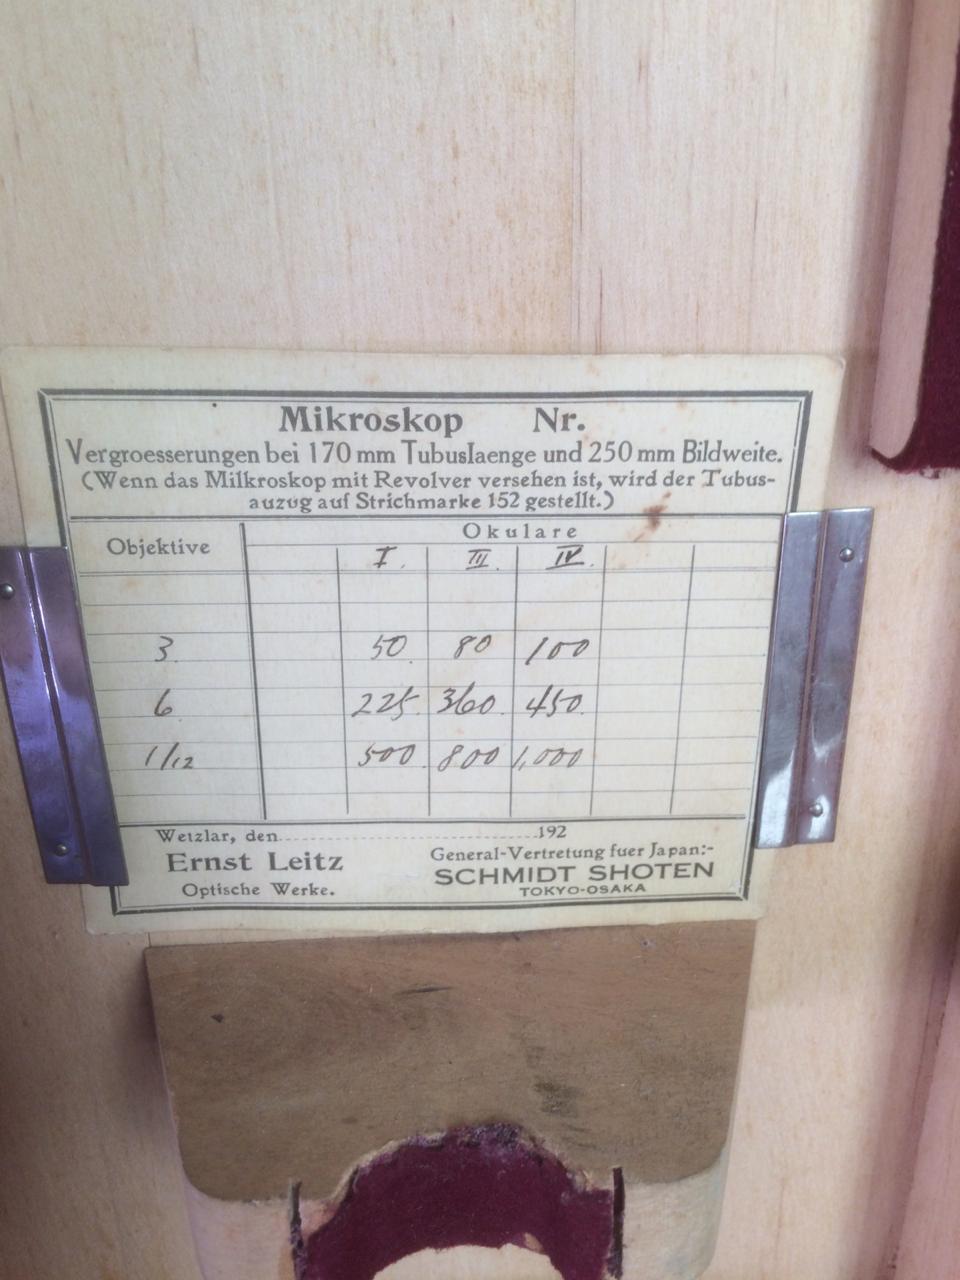 Mikroskop Nr.
Vergroesserungen bei 170 mm Tubuslaenge und 250 mm Bildweite.
(Wenn das Milkroskop mit Revolver versehen ist, wird der Tubus-
auzug auf Strichmarke 152 gestellt.)
Objektive Okulare
I. III. IV.
3. 50. 80 100
6. 225. 360. 450.
1/12 500. 800 1,000
Wetzlar, den 192
Ernst Leitz General-Vertretung fuer Japan:-
Optische Werke. SCHMIDT SHOTEN
TOKYO-OSAKA